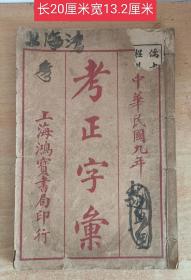 长20厘米宽13.2厘米
上海沈
中華民國九年
考正字彙
上海鴻寶書局印行